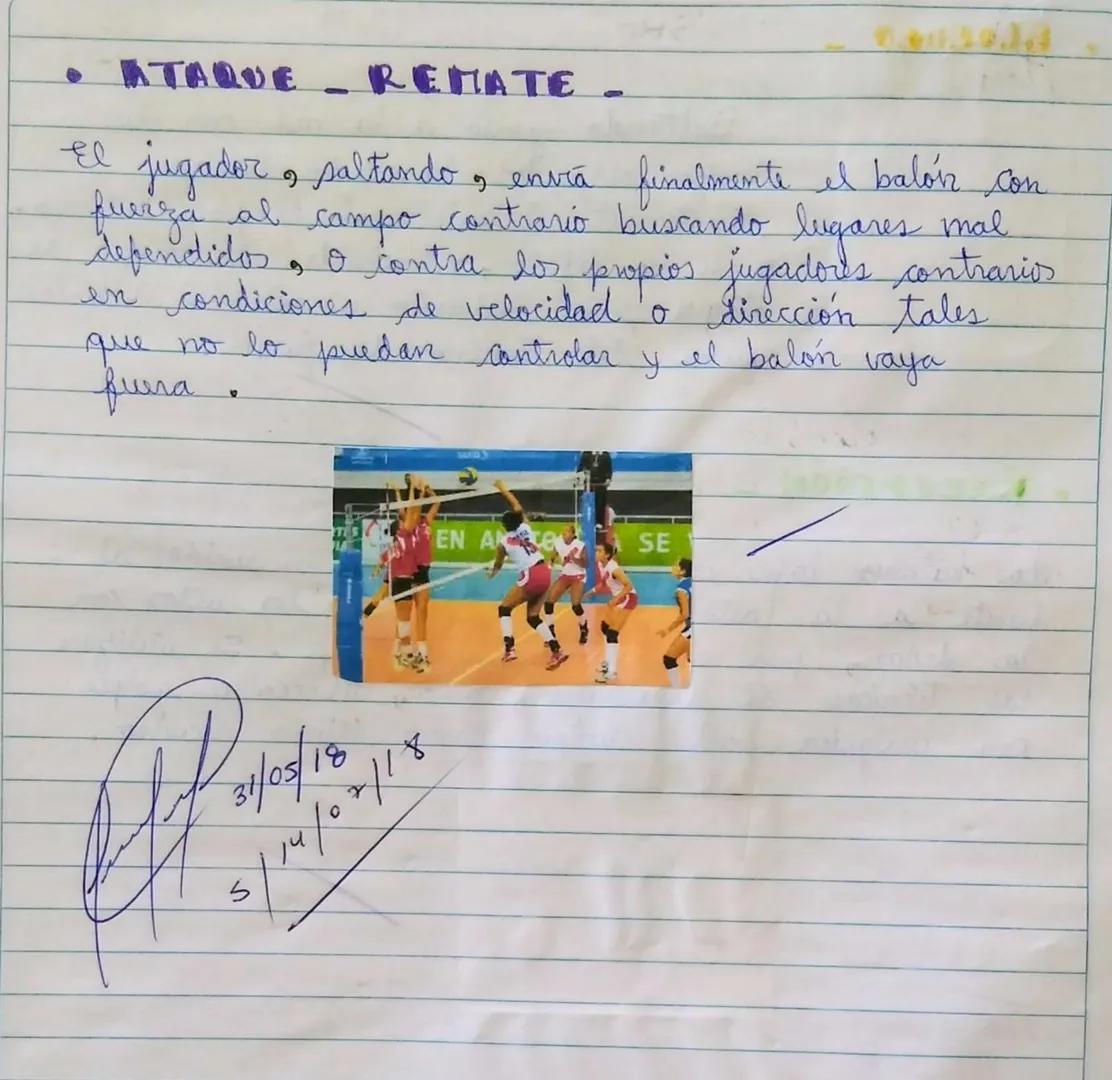 • ATAQUE _ REMATE _
El jugador, saltando, envía finalmente el balón con
fuerza al campo contrario buscando lugares mal
defendidos, o contra los propios jugadores contrarios
en condiciones de velocidad o dirección tales
que no lo puedan controlar y el balón vaya
fuera.
EN
SE
31/05/18